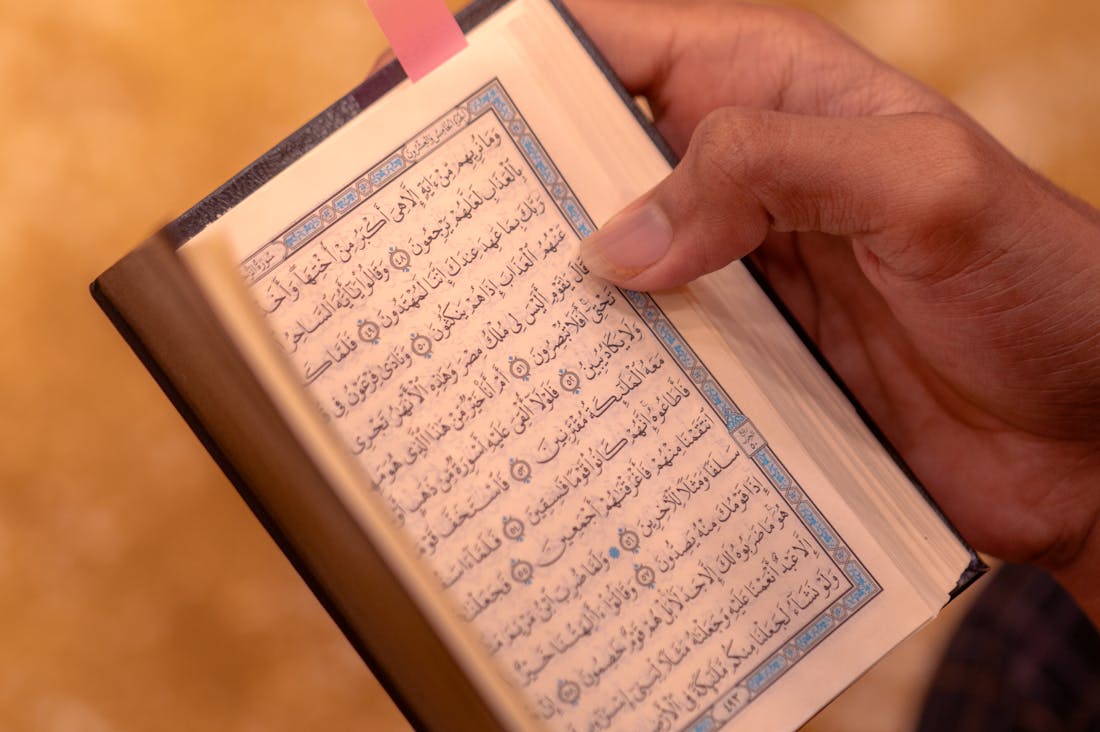 الجزء الخامس والعشرون
وَمَا نُرِيهِم مِّنْ ءَايَةٍ إِلَّا هِىَ أَكْبَرُ مِنْ أُخْتِهَا
بِٱلْعَذَابِ لَعَلَّهُمْ يَرْجِعُونَ ٤٨ وَقَالُوا۟ يَٰٓأَيُّهَ ٱلسَّاحِرُ
رَبَّكَ بِمَا عَهِدَ عِندَكَ إِنَّنَا لَمُهْتَدُونَ ٤٩
عَنْهُمُ ٱلْعَذَابَ إِذَا هُمْ يَنكُثُونَ ٥٠ وَنَادَىٰ فِرْعَوْنُ فِى
قَالَ يَٰقَوْمِ أَلَيْسَ لِى مُلْكُ مِصْرَ وَهَٰذِهِ ٱلْأَنْهَٰرُ تَجْرِى
تَحْتِىٓ أَفَلَا تُبْصِرُونَ ٥١ أَمْ أَنَا۠ خَيْرٌ مِّنْ هَٰذَا ٱلَّذِى هُوَ
وَلَا يَكَادُ يُبِينُ ٥٢ فَلَوْلَآ أُلْقِىَ عَلَيْهِ أَسْوِرَةٌ مِّن ذَهَبٍ
مَعَهُ ٱلْمَلَٰٓئِكَةُ مُقْتَرِنِينَ ٥٣ فَٱسْتَخَفَّ
فَأَطَاعُوهُ إِنَّهُمْ كَانُوا۟ قَوْمًا فَٰسِقِينَ ٥٤ فَلَمَّآ
ٱنتَقَمْنَا مِنْهُمْ فَأَغْرَقْنَٰهُمْ أَجْمَعِينَ ٥٥
سَلَفًا وَمَثَلًا لِّلْءَاخِرِينَ ٥٦ ۞ وَلَمَّا ضُرِبَ ٱبْنُ مَرْيَمَ
إِذَا قَوْمُكَ مِنْهُ يَصِدُّونَ ٥٧ وَقَالُوٓا۟ ءَأَٰلِهَتُنَا خَيْرٌ
هُوَ مَا ضَرَبُوهُ لَكَ إِلَّا جَدَلًۢا بَلْ هُمْ قَوْمٌ خَصِمُونَ ٥٨ إِنْ
إِلَّا عَبْدٌ أَنْعَمْنَا عَلَيْهِ وَجَعَلْنَٰهُ مَثَلًا لِّبَنِىٓ
وَلَوْ نَشَآءُ لَجَعَلْنَا مِنكُم مَّلَٰٓئِكَةً فِى ٱلْأَرْضِ
٤٩٣